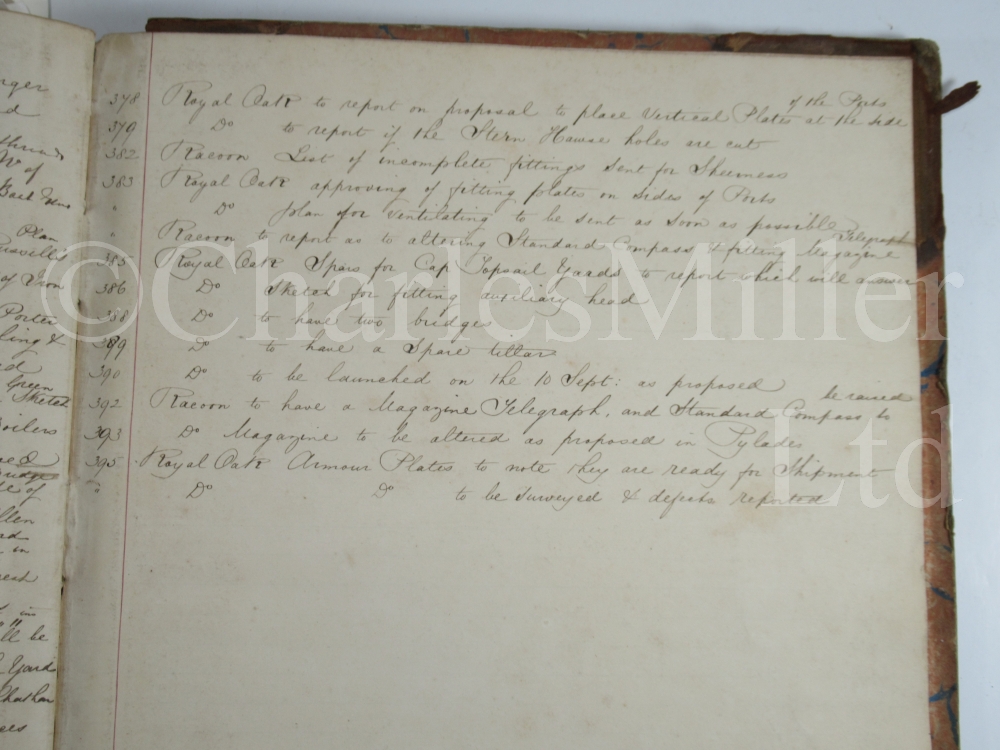 378 Royal Oak to report on proposal to place Vertical Plates at the side of the Ports
379 Do to report if the Stern Hawse holes are cut
382 Racoon List of incomplete fittings sent for Sheerness
383 Royal Oak approving of fitting plates on sides of Ports
" Do plan for ventilating to be sent as soon as possible
" Racoon to report as to altering Standard Compass & fitting Magazine Telegraph
385 Royal Oak Spars for Cap Topsail Yards to report which will answer
386 Do Sketch for fitting auxiliary head
388 Do to have two bridges
389 Do to have a Spare tillar
390 Do to be launched on the 10 Sept: as proposed
392 Racoon to have a Magazine Telegraph, and Standard Compass to be raised
393 Do Magazine to be altered as proposed in Pylades
395 Royal Oak Armour Plates to note they are ready for Shipment
" Do Do to be surveyed & defects reported
©CharlesMiller
Ltd
of
Plan
of Iron
Porter
&
Green
Sketch
Boilers
of
in
in
be
Yard
Chatham